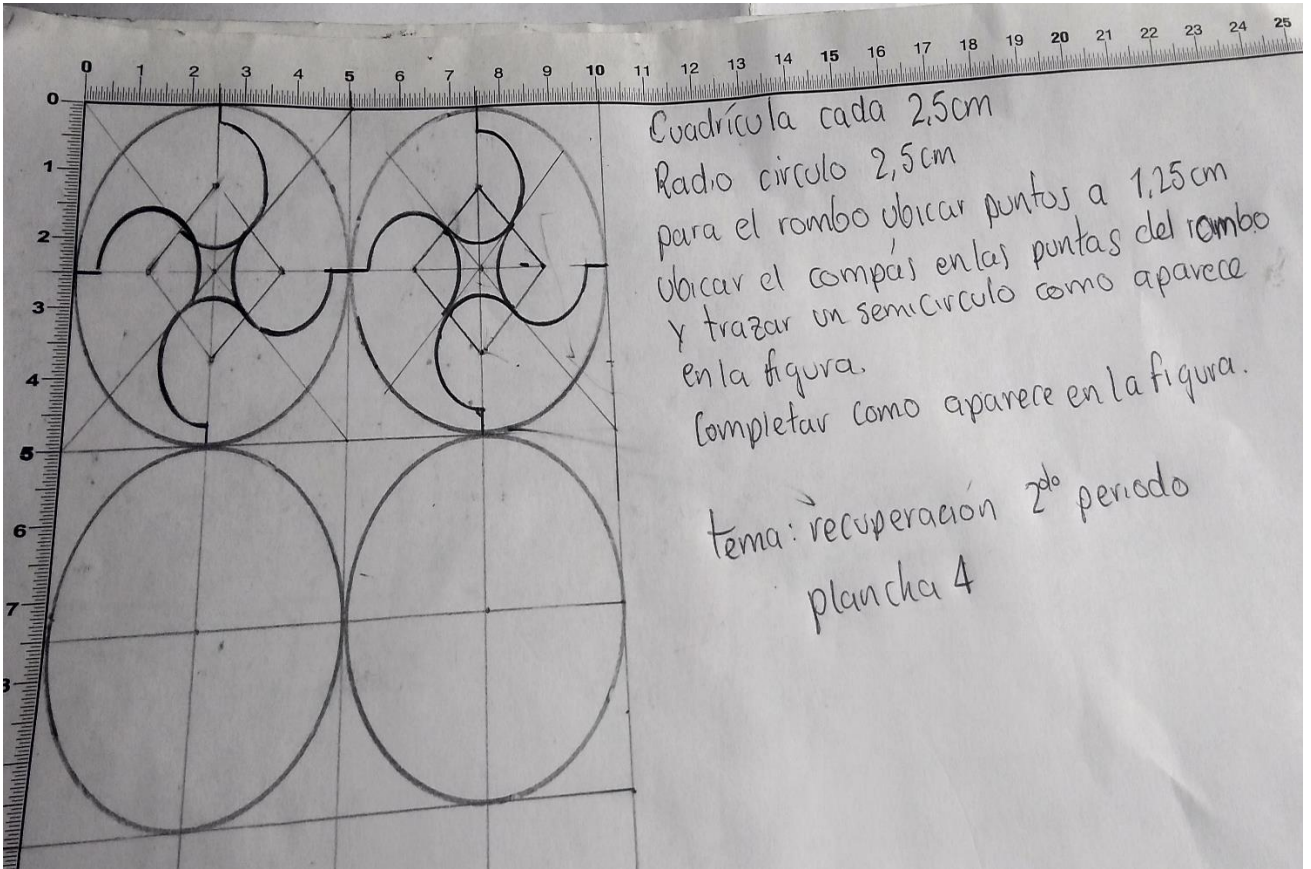 0 1 2 3 4 5 6 7 8 9 10 11 12 13 14 15 16 17 18 19 20 21 22 23 24 25
0
1
2
3
4
5
6
7
8
Cuadrícula cada 2,5cm
Radio circulo 2,5cm
para el rombo ubicar puntos a 1,25cm
Ubicar el compás en las puntas del rombo
y trazar un semicirculo como aparece
en la figura.
Completar como aparece en la figura.
tema: recuperación 2do periodo
plancha 4